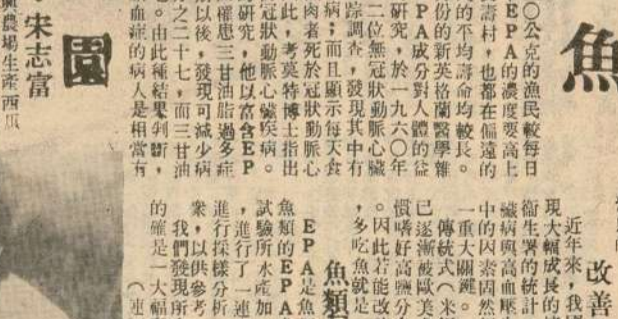 魚
〇公克的漁民較每日
EPA的濃度要高上
壽村,也都在偏遠的
的平均壽命均較長。
份的新英格蘭醫學雜
PA成分對人體的益
研究,於一九六〇年
二位無冠狀動脈心臟
踪調查,發現其中有
病;而且顯示每天食
肉者死於冠狀動脈心
此,考莫特博士指出
冠狀動脈心臟疾病。
的研究,他以富含EP
罹患三甘油脂過多症
期以後,發現可減少病
之二十七,而三甘油
。由此種結果判斷,
血症的病人是相當有
園
宋志富
農場生產西
改善
近年來,我國
現大幅成長的
衞生署的統計
臟病與高血壓
中的因素固然
一重大關鍵。
傳統式(米
已逐漸被歐美
慣嗜好高鹽分
。因此若能改
,多吃魚就是
魚類
EPA是魚
魚類的EPA
試驗所水產加
,進行了一連
進行採樣分析
衆,以供參考
我們發現所
的確是一大福
(連